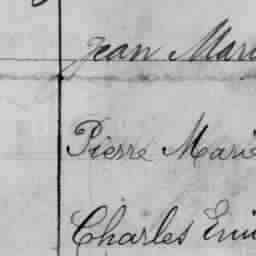 Jean Mari
Pierre Marie
Charles Emi